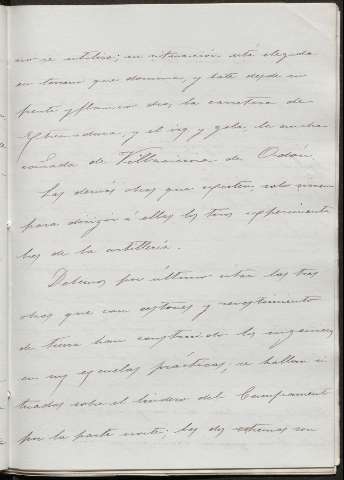 no se utiliza; su situación está elegida
en terreno que domina, y bate desde su
frente y flancos dos la carretera de
y el izq y gola, la ancha
cañada de Villaviciosa de Odón.
Las demás obras que existen solo sirven
para dirigir á ellas los tiros experimenta
les de la artillería.
Debemos por último citar las tres
obras que con cestones y revestimento
de tierra han construido los ingenieros
en sus escuelas prácticas, se hallan si
tuadas sobre el lindero del Campamento
por la parte norte; las dos extremas son